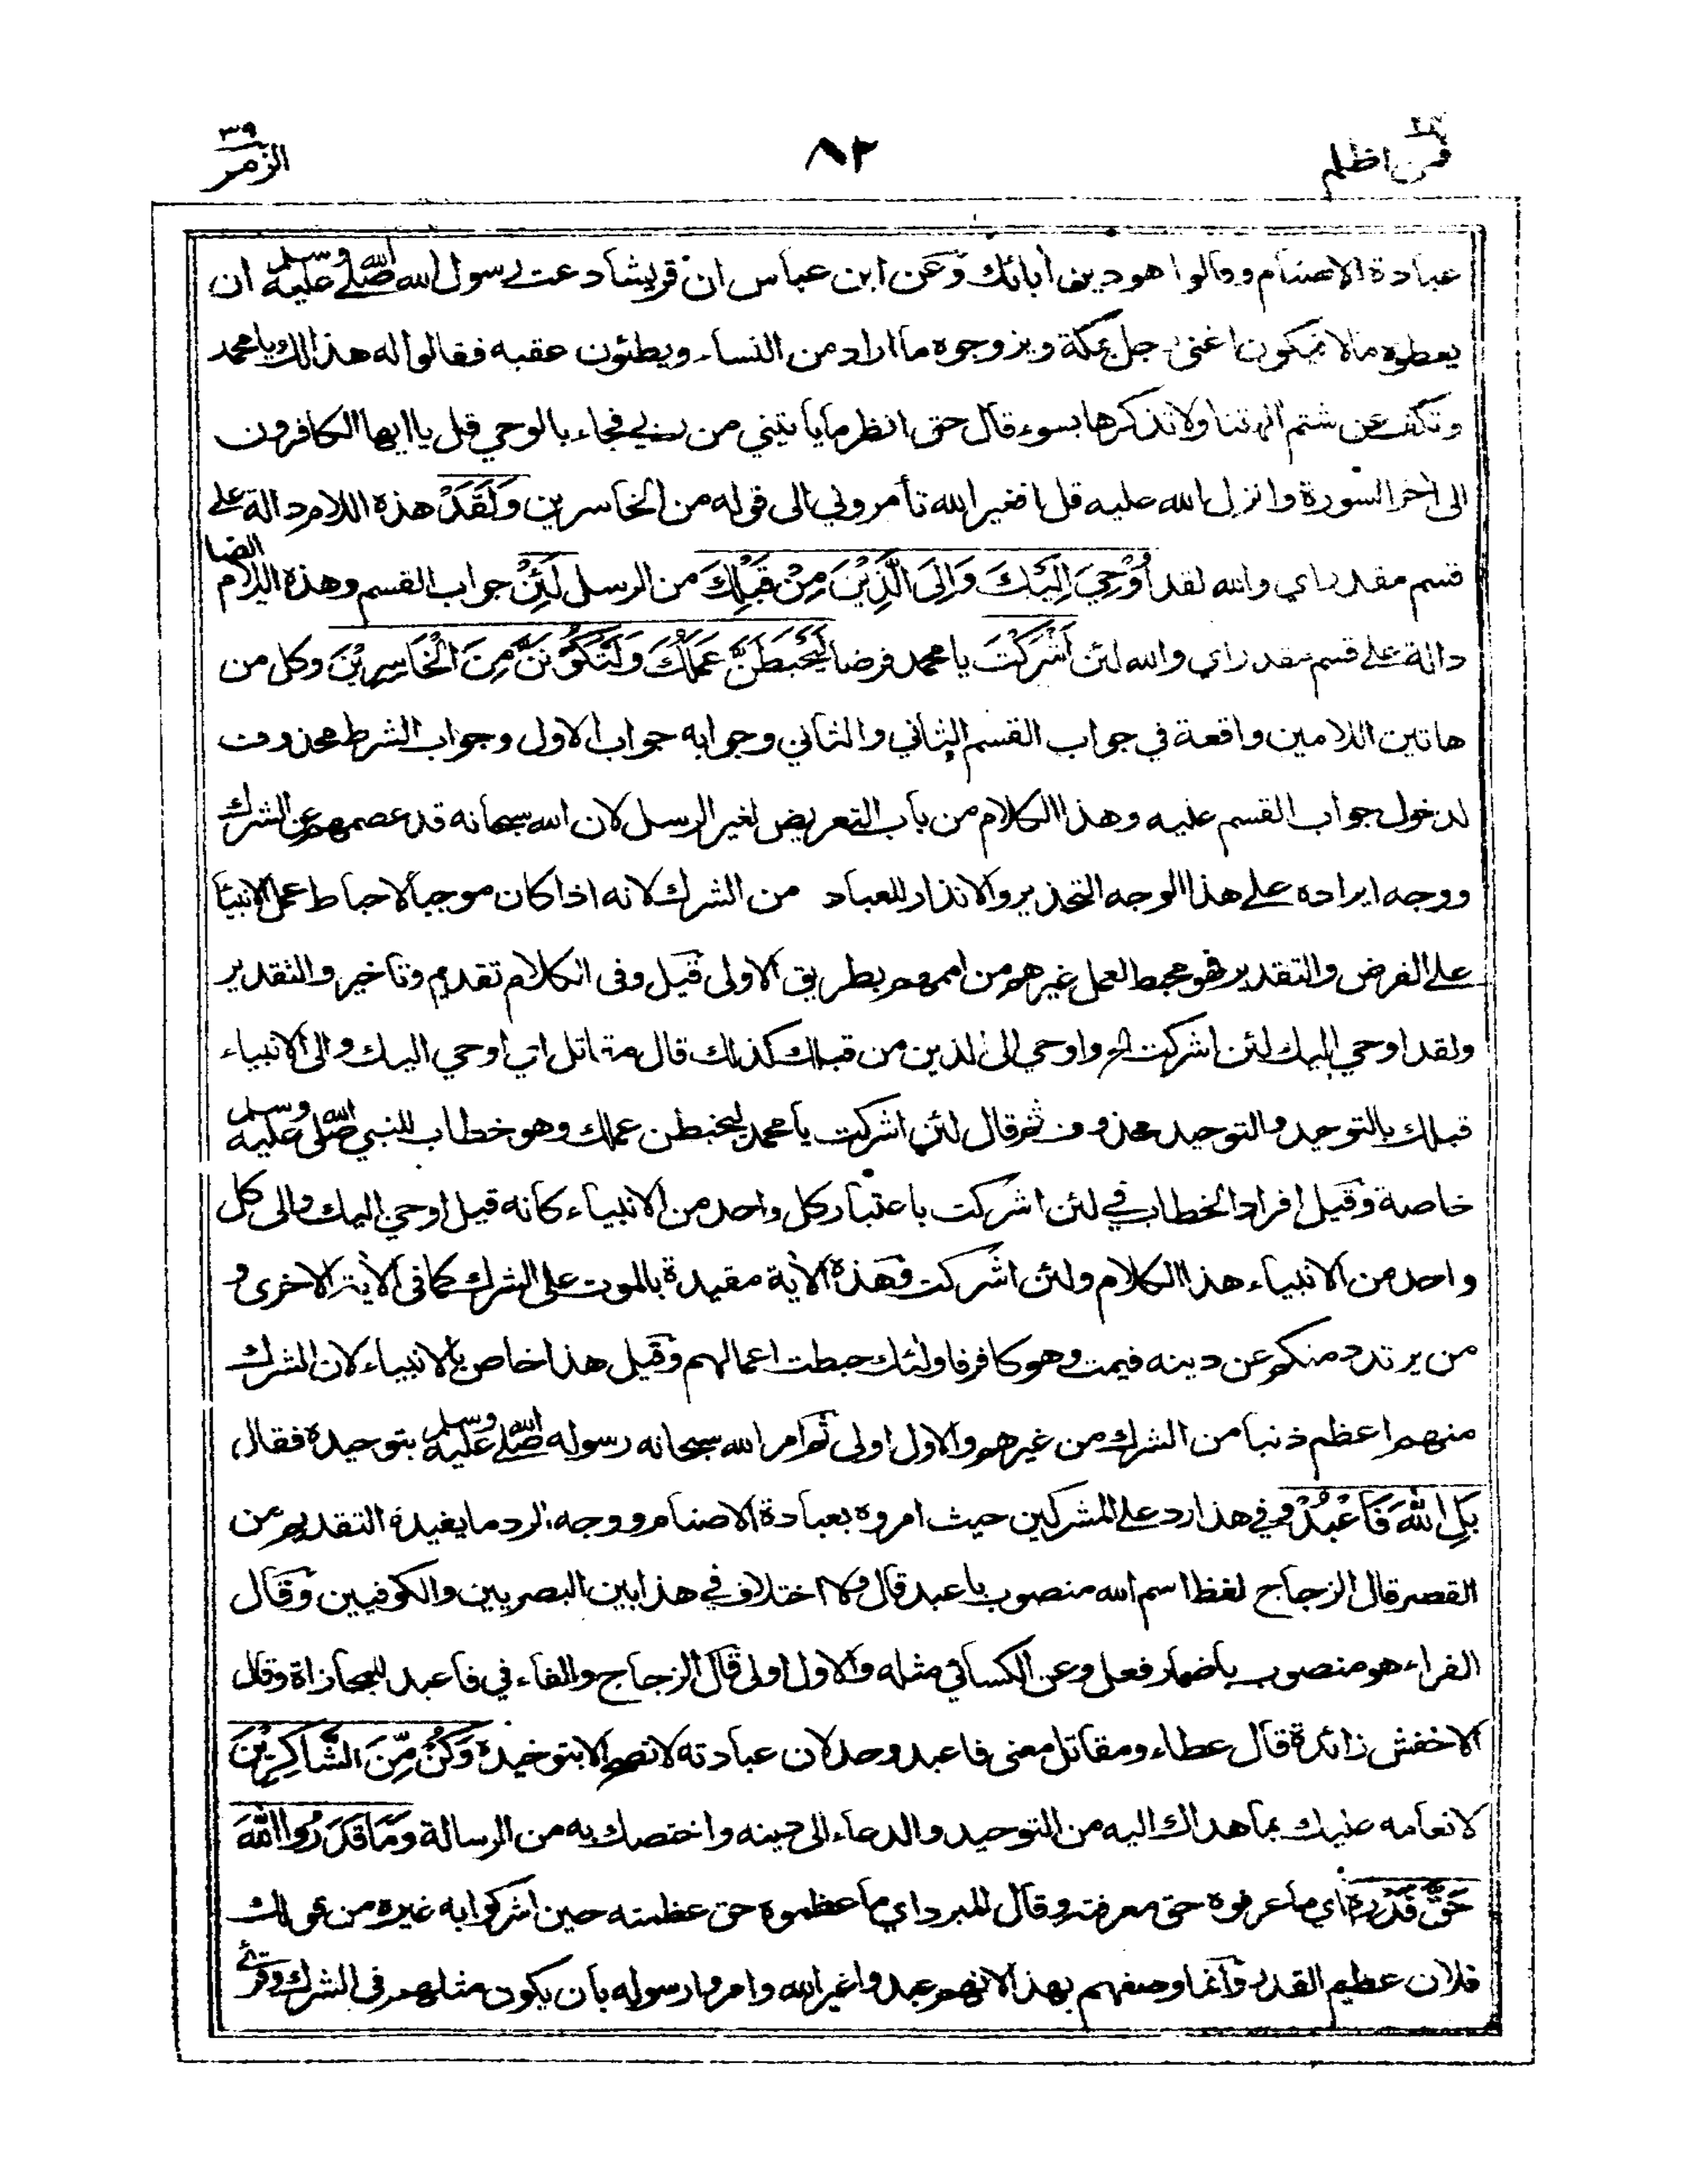 فمن اظلم ٢٤
٨٢
الزمر ٣٩
عبادة الاصنام وقالوا هو دين أبائك وعن ابن عباس ان قريشا دعت رسول الله صلى الله عليه وسلم ان
يعطوه مالا فيكون اغنى رجل بمكة ويزوجوه ما اراد من النساء ويطئون عقبه فقالوا له هذا لك يا محمد
وتكف عن شتم ألهتنا ولا تذكرها بسوء قال حتى انظر ما يأتيني من ربي فجاء بالوحي قل يا ايها الكافرون
الى أخر السورة وانزل الله عليه قل افغير الله تأمروني الى قوله من الخاسرين وَلَقَدْ هذه اللام دالة على
قسم مقدر اي والله لقد أُوْحِيَ إِلَيْكَ وَإِلَى الَّذِيْنَ مِنْ قَبْلِكَ من الرسل لَئِنْ جواب القسم وهذه اللام ايضا
دالة على قسم مقدر اي والله لئن أَشْرَكْتَ يا محمد فرضا لَيَحْبَطَنَّ عَمَلُكَ وَلَتَكُوْنَنَّ مِنَ الْخَاسِرِيْنَ وكل من
هاتين اللامين واقعة في جواب القسم الثاني والثاني وجوابه جواب الاول وجواب الشرط محذوف
لدخول جواب القسم عليه وهذا الكلام من باب التعريض لغير الرسل لان الله سبحانه قد عصمهم عن الشرك
ووجه ايراده على هذا الوجه التحذير والانذار للعباد من الشرك لانه اذا كان موجبا لاحباط عمل الانبيا
على الفرض والتقدير فهو محبط لعمل غيرهم من اممهم بطريق الاولى قيل وفى الكلام تقديم وتأخير والتقدير
ولقد اوحي اليك لئن اشركت الخ واوحي الى الذين من قبلك كذلك قال مقاتل اي اوحي اليك والى الانبياء
قبلك بالتوحيد والتوحيد محذوف ثم قال لئن اشركت يا محمد ليحبطن عملك وهو خطاب للنبي صلى الله عليه وسلم
خاصة وقيل افراد الخطاب في لئن اشركت باعتبار كل واحد من الانبياء كأنه قيل اوحي اليك والى كل
واحد من الانبياء هذا الكلام ولئن اشركت وهذه الأية مقيدة بالموت على الشرك كما فى الأية الاخرى و
من يرتدد منكم عن دينه فيمت وهو كافر فاولئك حبطت اعمالهم وقيل هذا خاص بالانبياء لان الشرك
منهم اعظم ذنبا من الشرك من غيرهم والاول اولى ثم امر الله سبحانه رسوله صلى الله عليه وسلم بتوحيده فقال
بَلِ اللهَ فَاعْبُدْ وفي هذا رد على المشركين حيث امروه بعبادة الاصنام ووجه الرد ما يفيده التقديم من
القصر قال الزجاج لفظ اسم الله منصوب باعبد قال ولا اختلاف في هذا بين البصريين والكوفيين وقال
الفراء هو منصوب باضمار فعل وعن الكسائي مثله والاول اولى قال الزجاج والفاء في فاعبد للمجازاة وقال
الاخفش زائدة قال عطاء ومقاتل معنى فاعبد وحد لان عبادته لا تصح الا بتوحيده وَكُنْ مِّنَ الشَّاكِرِيْنَ
لانعامه عليك بما هداك اليه من التوحيد والدعاء الى دينه واختصك به من الرسالة وَمَا قَدَرُوا اللهَ
حَقَّ قَدْرِهِ اي ما عرفوه حق معرفته وقال المبرد اي ما عظموه حق عظمته حين اشركوا به غيره من قولك
فلان عظيم القدر وانما وصفهم بهذا لانهم عبدوا غير الله وامروا رسوله بأن يكون مثلهم فى الشرك وقرئ